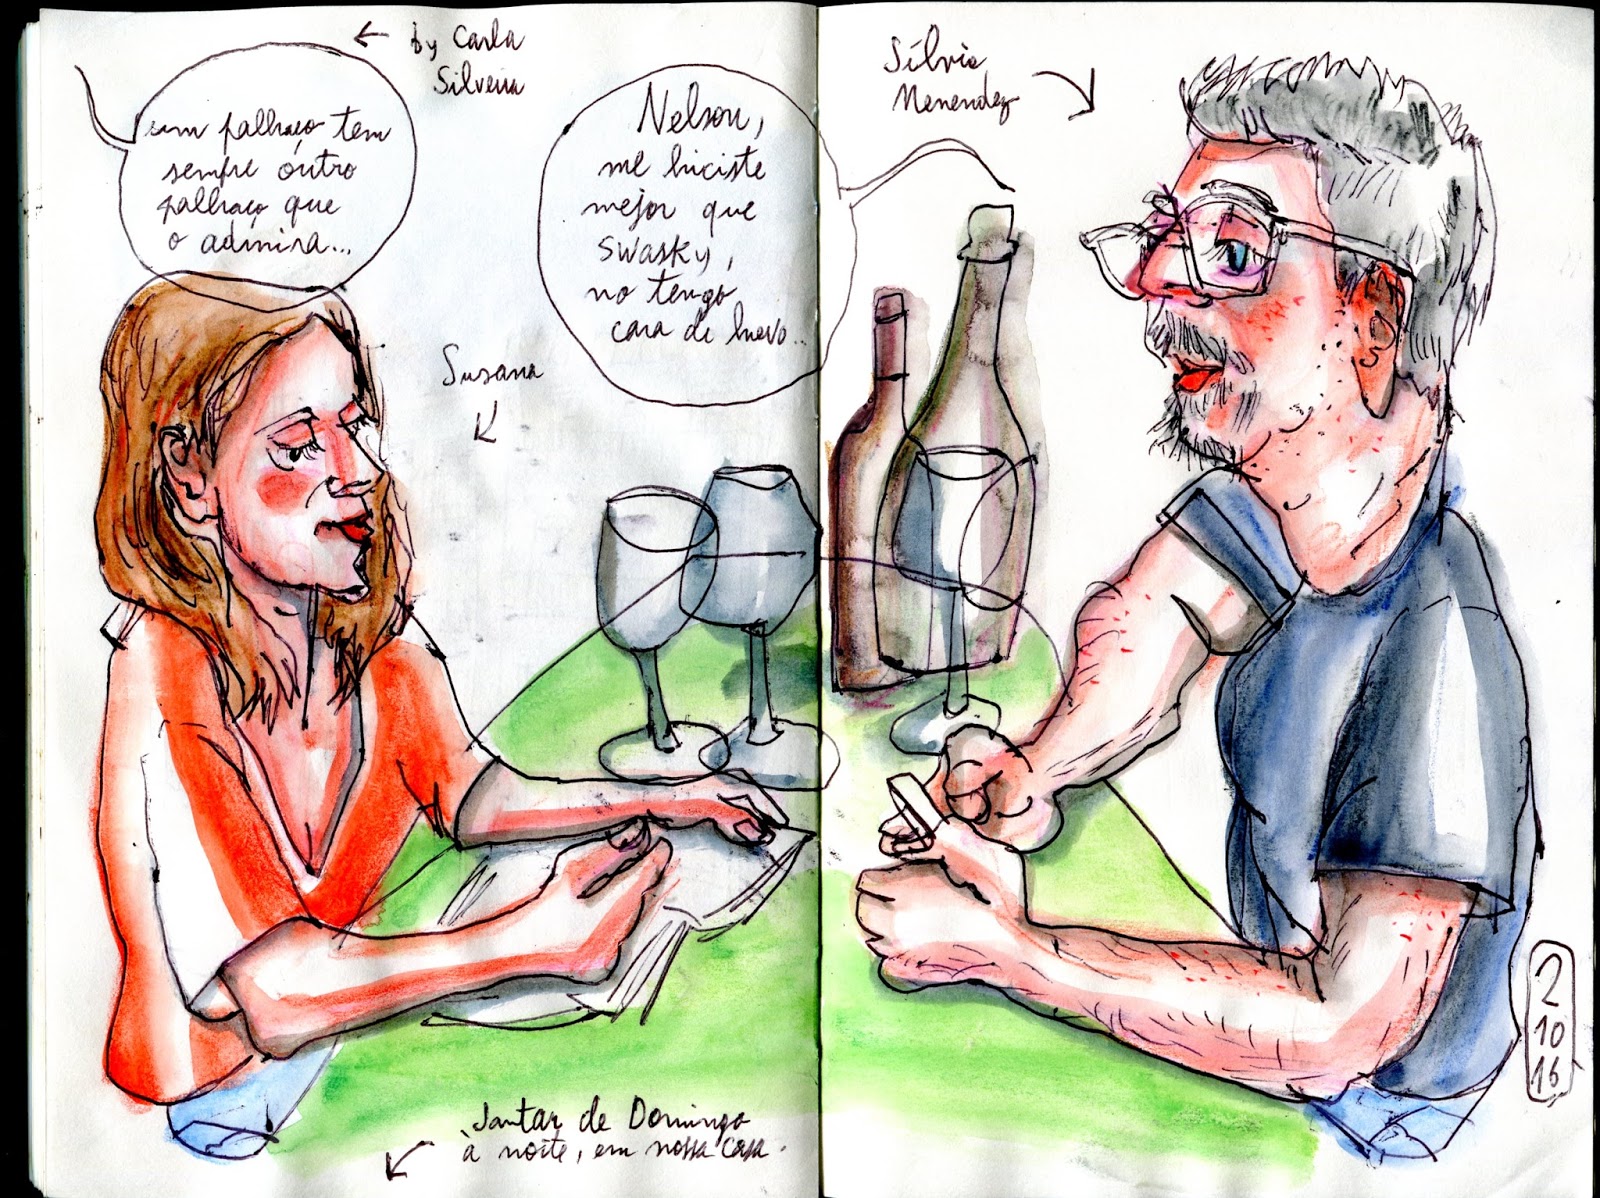 by Carla
Silveira
um palhaço tem
sempre outro
palhaço que
o admira...
Nelson,
me hiciste
mejor que
swasky,
no tengo
cara de huevo..
Sílvio
Menendez
Susana
Jantar de Domingo
à noite, em nossa casa.
2
10
16